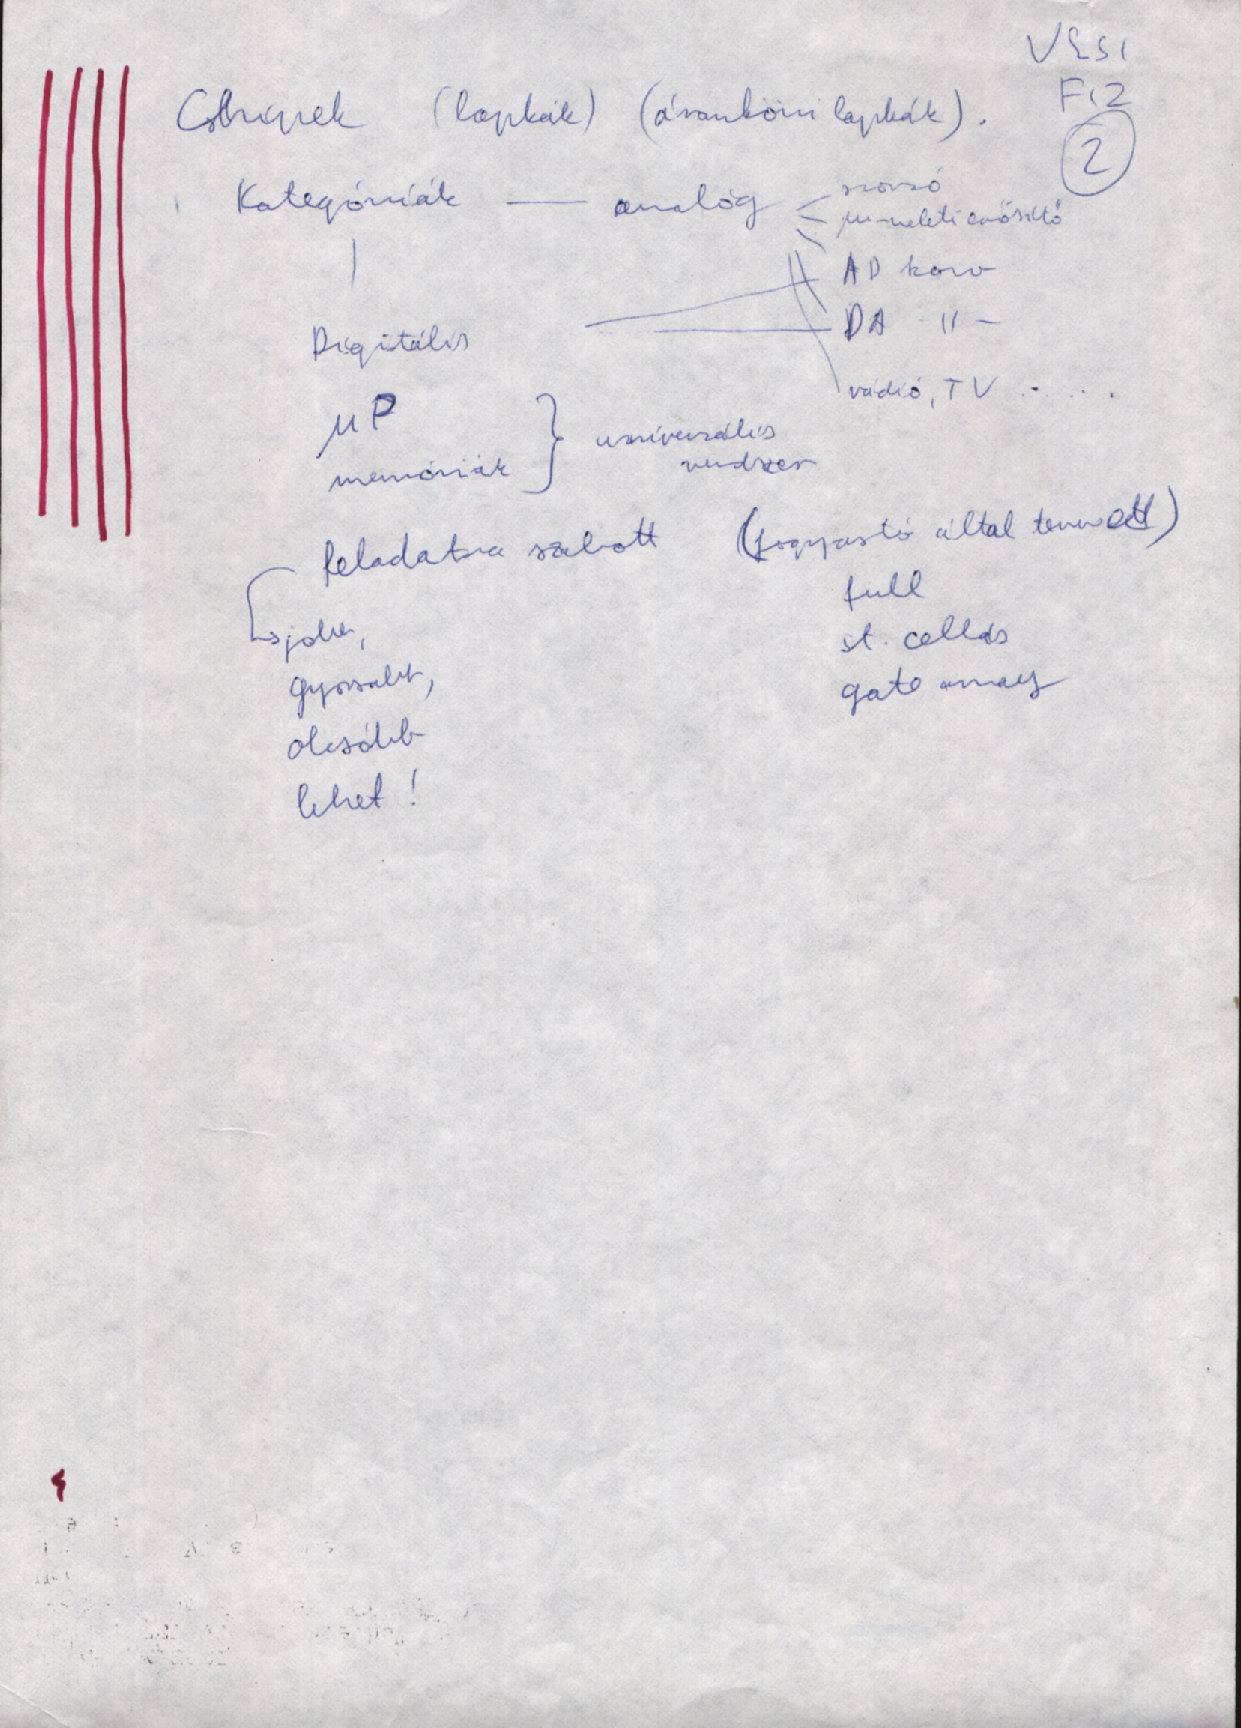 VLSI
F12
2
Cshipek (lapkák) (áramköri lapkák).
Kategóriák — analóg
szorzó
műveleti erősítő
AD konv
DA -11-
rádió, TV . . .
Digitális
μP
memóriák } univerzális
rendszer
feladatra szabott (fogyasztó által tervezett)
full
st. cellás
gate array
jobb,
gyorsabb,
olcsóbb
lehet!